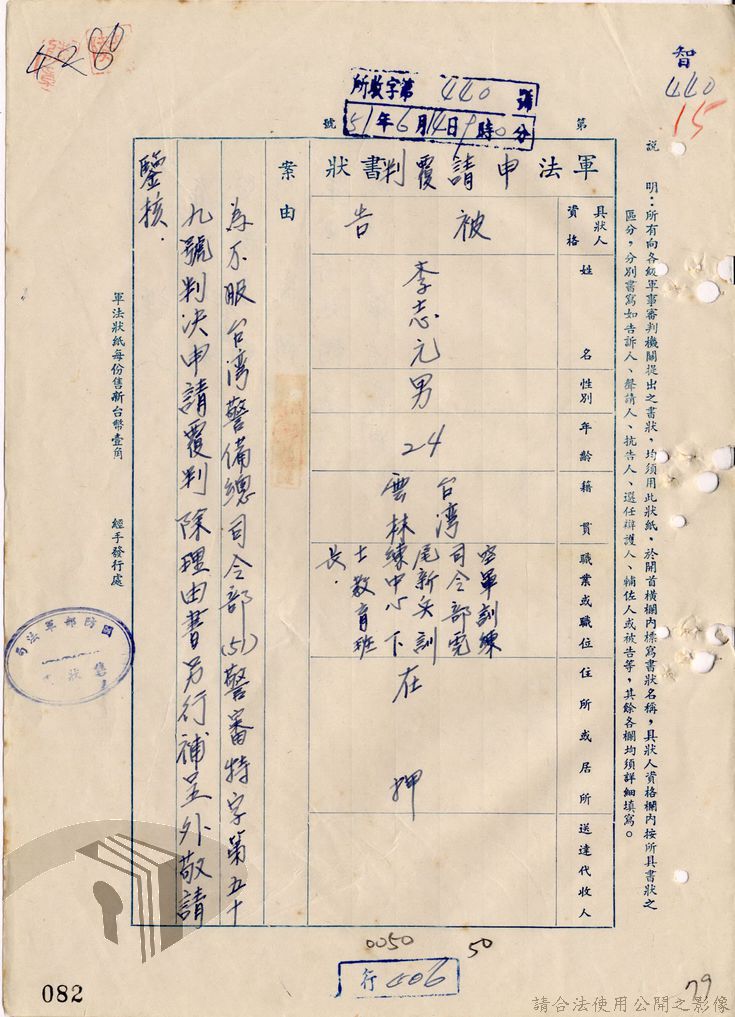 智
440
15
428
所收字第440號
51年6月14日9時0分
第
號
說明：所有向各級軍事審判機關提出之書狀，均須用此狀紙，於開首橫欄內標寫書狀名稱，具狀人資格欄內按所具書狀之
區分，分別書寫如告訴人、聲請人、抗告人、選任辯護人、輔佐人或被告等，其餘各欄均須詳細填寫。
軍法申請覆判書狀
具狀人資格
被告
姓名
李志元
性別
男
年齡
24
籍貫
台湾
雲林
職業或職位
空軍訓練
司令部虎
尾新兵訓
練中心下
士教育班
長．
住所或居所
在押
送達代收人
案由
為不服台湾警備總司令部(51)警審特字第五十
九號判決申請覆判除理由書另行補呈外敬請
鑒核．
軍法狀紙每份售新台幣壹角
經手發行處
國防部軍法局
售狀
0050
50
行406
082
79
請合法使用公開之影像